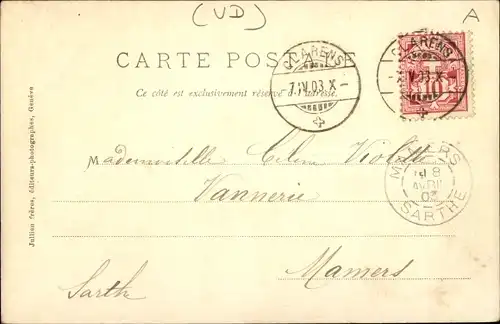 (VD)
A
CARTE POSTALE
Ce côté est exclusivement réservé à l'adresse.
CLARENS
7.IV.03.X-
CLARENS
7.IV.03.X-
10
Mademoiselle Celine Violette
Vannerie
Mamers
Sarthe
MAMERS
8
AVRIL
03
SARTHE
Jullien frères, éditeurs-photographes, Genève